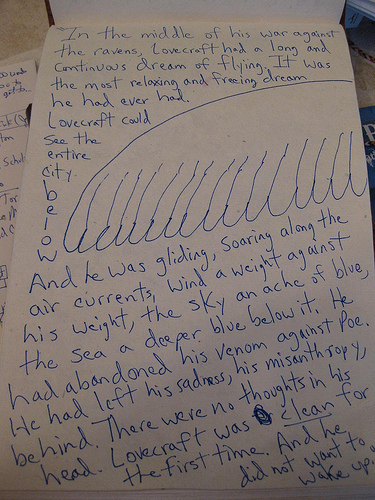 "In the middle of his war against
the ravens, Lovecraft had a long and
continuous dream of flying. It was
the most relaxing and freeing dream
he had ever had.
Lovecraft could
see the
entire
city
b
e
l
o
w
And he was gliding, soaring along the
air currents, wind a weight against
his weight, the sky an ache of blue,
the sea a deeper blue below it. He
had abandoned his venom against Poe.
He had left his sadness, his misanthropy,
behind. There were no thoughts in his
head. Lovecraft was clean for
the first time. And he
did not want to
wake up.